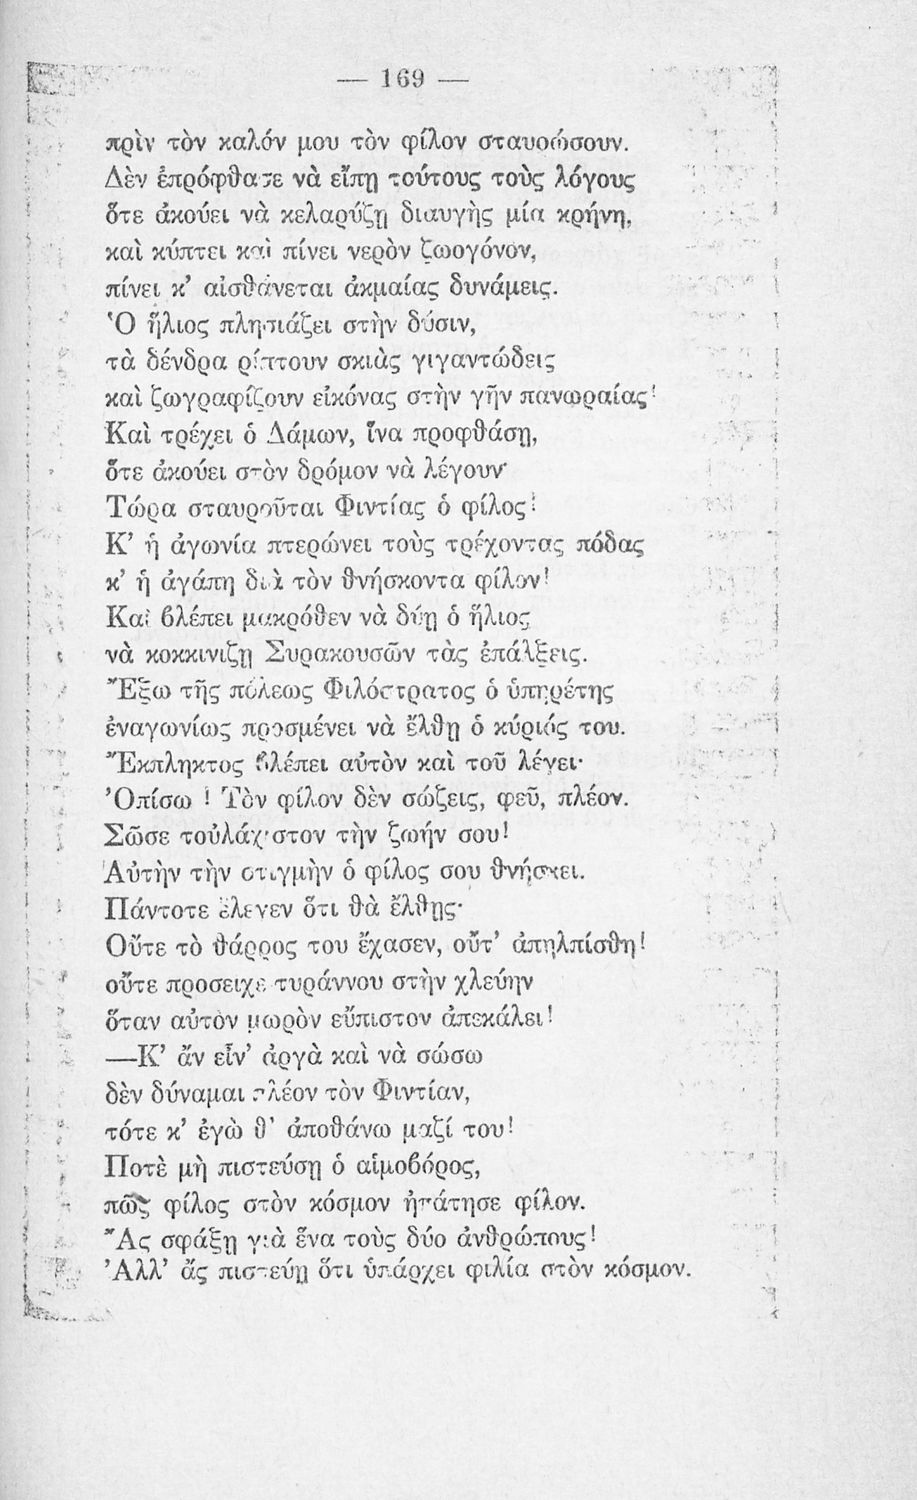 — 169 —
πρὶν τὸν καλόν μου τὸν φίλον σταυρώσουν.
Δὲν ἐπρόφθασε νὰ εἴπῃ τούτους τοὺς λόγους
ὅτε ἀκούει νὰ κελαρύζῃ διαυγὴς μία κρήνη,
καὶ κύπτει καὶ πίνει νερὸν ζωογόνον,
πίνει κ’ αἰσθάνεται ἀκμαίας δυνάμεις.
Ὁ ἥλιος πλησιάζει στὴν δύσιν,
τὰ δένδρα ρίπτουν σκιὰς γιγαντώδεις
καὶ ζωγραφίζουν εἰκόνας στὴν γῆν πανωραίας!
Καὶ τρέχει ὁ Δάμων, ἵνα προφθάσῃ,
ὅτε ἀκούει στὸν δρόμον νὰ λέγουν·
Τώρα σταυροῦται Φιντίας ὁ φίλος!
Κ’ ἡ ἀγωνία πτερώνει τοὺς τρέχοντας πόδας
κ’ ἡ ἀγάπη διὰ τὸν θνήσκοντα φίλον!
Καὶ βλέπει μακρόθεν νὰ δύῃ ὁ ἥλιος
νὰ κοκκινιζῃ Συρακουσῶν τὰς ἐπάλξεις.
Ἔξω τῆς πόλεως Φιλόστρατος ὁ ὑπηρέτης
ἐναγωνίως προσμένει νὰ ἔλθῃ ὁ κύριός του.
Ἔκπληκτος βλέπει αὐτὸν καὶ τοῦ λέγει·
Ὀπίσω ! Τὸν φίλον δὲν σώζεις, φεῦ, πλέον.
Σῶσε τοὐλάχιστον τὴν ζωήν σου!
Αὐτὴν τὴν στιγμὴν ὁ φίλος σου θνήσκει.
Πάντοτε ἔλεγεν ὅτι θὰ ἔλθῃς·
Οὔτε τὸ θάρρος του ἔχασεν, οὔτ’ ἀπηλπίσθη!
οὔτε προσειχε τυράννου στὴν χλεύην
ὅταν αὐτὸν μωρὸν εὔπιστον ἀπεκάλει!
—Κ’ ἄν εἶν’ ἀργὰ καὶ νὰ σώσω
δὲν δύναμαι πλέον τὸν Φιντίαν,
τότε κ’ ἐγὼ θ’ ἀποθάνω μαζί του!
Ποτὲ μὴ πιστεύσῃ ὁ αἱμοβόρος,
πῶς φίλος στὸν κόσμον ἠπάτησε φίλον.
Ἄς σφάξῃ γιὰ ἕνα τοὺς δύο ἀνθρώπους!
Ἀλλ’ ἄς πιστεύῃ ὅτι ὑπάρχει φιλία στὸν κόσμον.